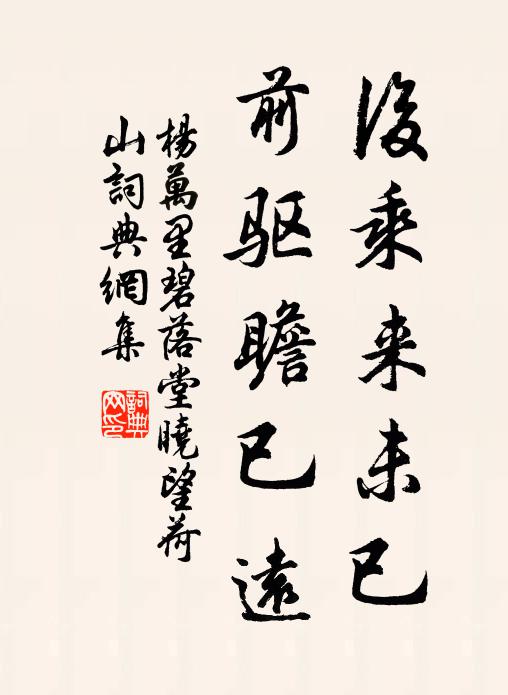 後乘来未已
前驱瞻已遠
楊萬里碧落堂曉望荷
山詞典網集
詞典
网印